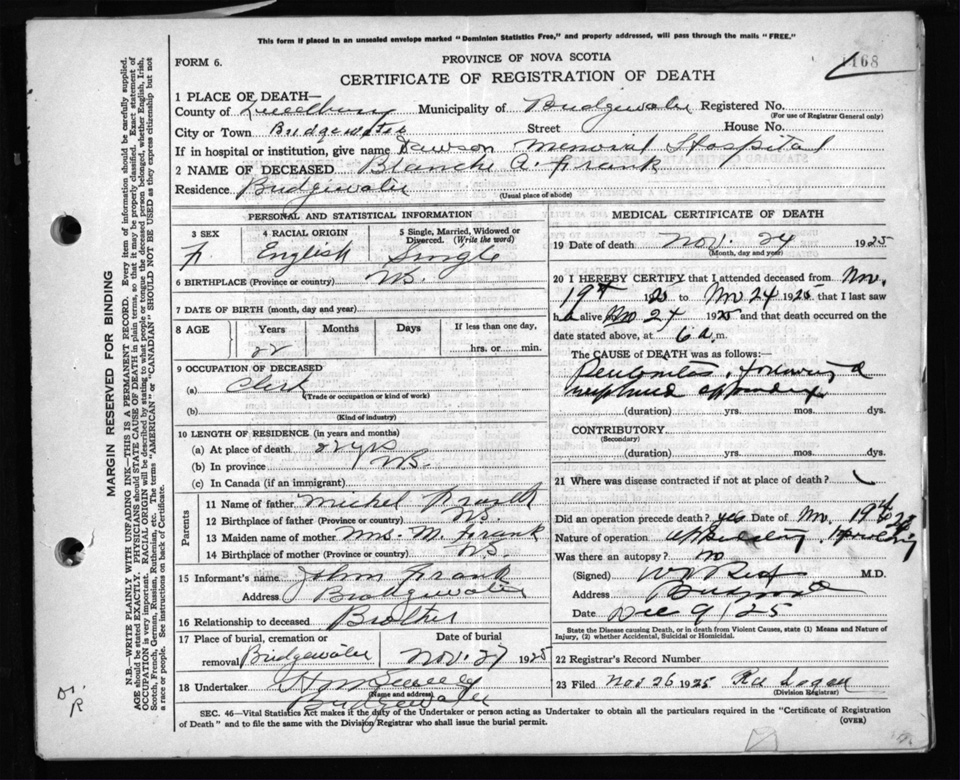 This form if placed in an unsealed envelope marked "Dominion Statistics Free," and properly addressed, will pass through the mails "FREE."
FORM 6.
PROVINCE OF NOVA SCOTIA
168
CERTIFICATE OF REGISTRATION OF DEATH
1 PLACE OF DEATH—
County of Lunenburg Municipality of Bridgewater Registered No.
(For use of Registrar General only)
City or Town Bridgewater Street House No.
If in hospital or institution, give name Dawson Memorial Hospital
2 NAME OF DECEASED Blanche A. Frank
Residence Bridgewater
(Usual place of abode)
PERSONAL AND STATISTICAL INFORMATION
3 SEX 4 RACIAL ORIGIN 5 Single, Married, Widowed or Divorced. (Write the word)
F. English Single
6 BIRTHPLACE (Province or country) NS.
7 DATE OF BIRTH (month, day and year)
8 AGE Years Months Days If less than one day,
22 hrs. or min.
9 OCCUPATION OF DECEASED
(a) Clerk
(Trade or occupation or kind of work)
(b)
(Kind of industry)
10 LENGTH OF RESIDENCE (in years and months)
(a) At place of death 22 yrs
(b) In province NS.
(c) In Canada (if an immigrant)
Parents
11 Name of father Frank
12 Birthplace of father (Province or country) NS.
13 Maiden name of mother Mrs. M. Frank
14 Birthplace of mother (Province or country) NS.
15 Informant's name John Frank
Address Bridgewater
16 Relationship to deceased Brother
17 Place of burial, cremation or removal Bridgewater Date of burial Nov. 27 1925
18 Undertaker
(Name and address)
Bridgewater
MEDICAL CERTIFICATE OF DEATH
19 Date of death Nov. 24 1925
(Month, day and year)
20 I HEREBY CERTIFY that I attended deceased from Nov.
19th 192 to Nov 24 1925 that I last saw
h alive Nov 24 1925 and that death occurred on the
date stated above, at 6 a. m.
The CAUSE OF DEATH was as follows:—
Peritonitis, following a
ruptured appendix
(duration) yrs. mos. dys.
CONTRIBUTORY
(Secondary)
(duration) yrs. mos. dys.
21 Where was disease contracted if not at place of death?
Did an operation precede death? yes Date of Nov. 19th
Nature of operation
Was there an autopsy? no
(Signed) M.D.
Address
Date Dec 9/25
State the Disease causing Death, or in death from Violent Causes, state (1) Means and Nature of Injury, (2) whether Accidental, Suicidal or Homicidal.
22 Registrar's Record Number
23 Filed Nov 26 1925
(Division Registrar)
SEC. 46—Vital Statistics Act makes it the duty of the Undertaker or person acting as Undertaker to obtain all the particulars required in the "Certificate of Registration
of Death" and to file the same with the Division Registrar who shall issue the burial permit.
(OVER)
MARGIN RESERVED FOR BINDING
N.B.—WRITE PLAINLY WITH UNFADING INK—THIS IS A PERMANENT RECORD. Every item of information should be carefully supplied.
AGE should be stated EXACTLY. PHYSICIANS should STATE CAUSE OF DEATH in plain terms, so that it may be properly classified. Exact statement of
OCCUPATION is very important. RACIAL ORIGIN will be described by stating to what people or tongue the deceased person belonged, whether English, Irish,
Scotch, French, German, Russian, Ruthenian, etc. The terms "AMERICAN" or "CANADIAN" SHOULD NOT BE USED as they express citizenship but not
a race or people. See instructions on back of Certificate.